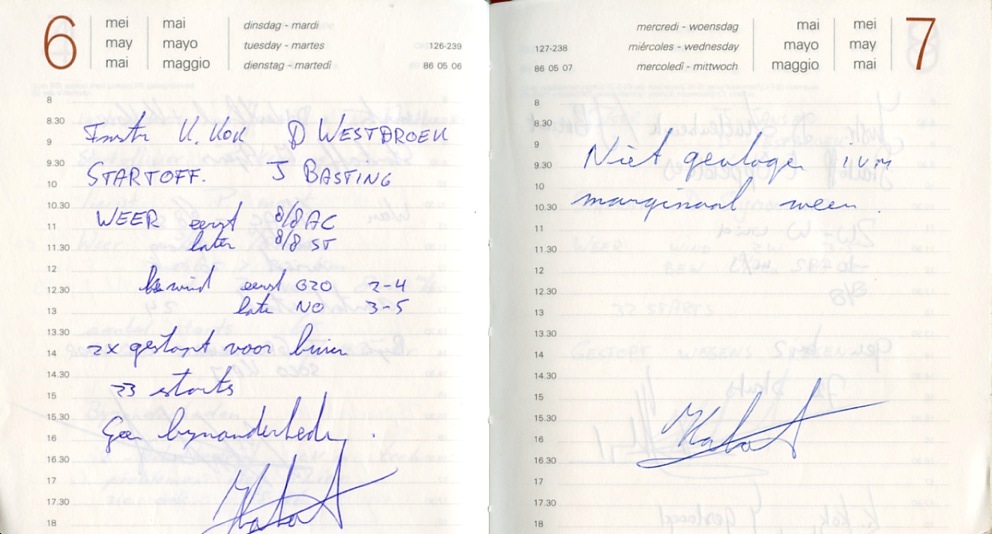 6
mei mai dinsdag - mardi
may mayo tuesday - martes 126-239
mai maggio dienstag - martedì 86 05 06
8
8.30
9
9.30
10
10.30
11
11.30
12
12.30
13
13.30
14
14.30
15
15.30
16
16.30
17
17.30
18
Instr K. KOK D WESTBROEK
STARTOFF. J BASTING
WEER eerst 8/8 AC
later 8/8 ST
wind eerst OZO 2-4
later NO 3-5
2x gestopt voor buien
23 starts
Geen bijzonderheden.
mercredi - woensdag mai mei 7
127-238 miércoles - wednesday mayo may
86 05 07 mercoledì - mittwoch maggio mai
8
8.30
9
9.30
10
10.30
11
11.30
12
12.30
13
13.30
14
14.30
15
15.30
16
16.30
17
17.30
18
Niet gevlogen ivm
marginaal weer.